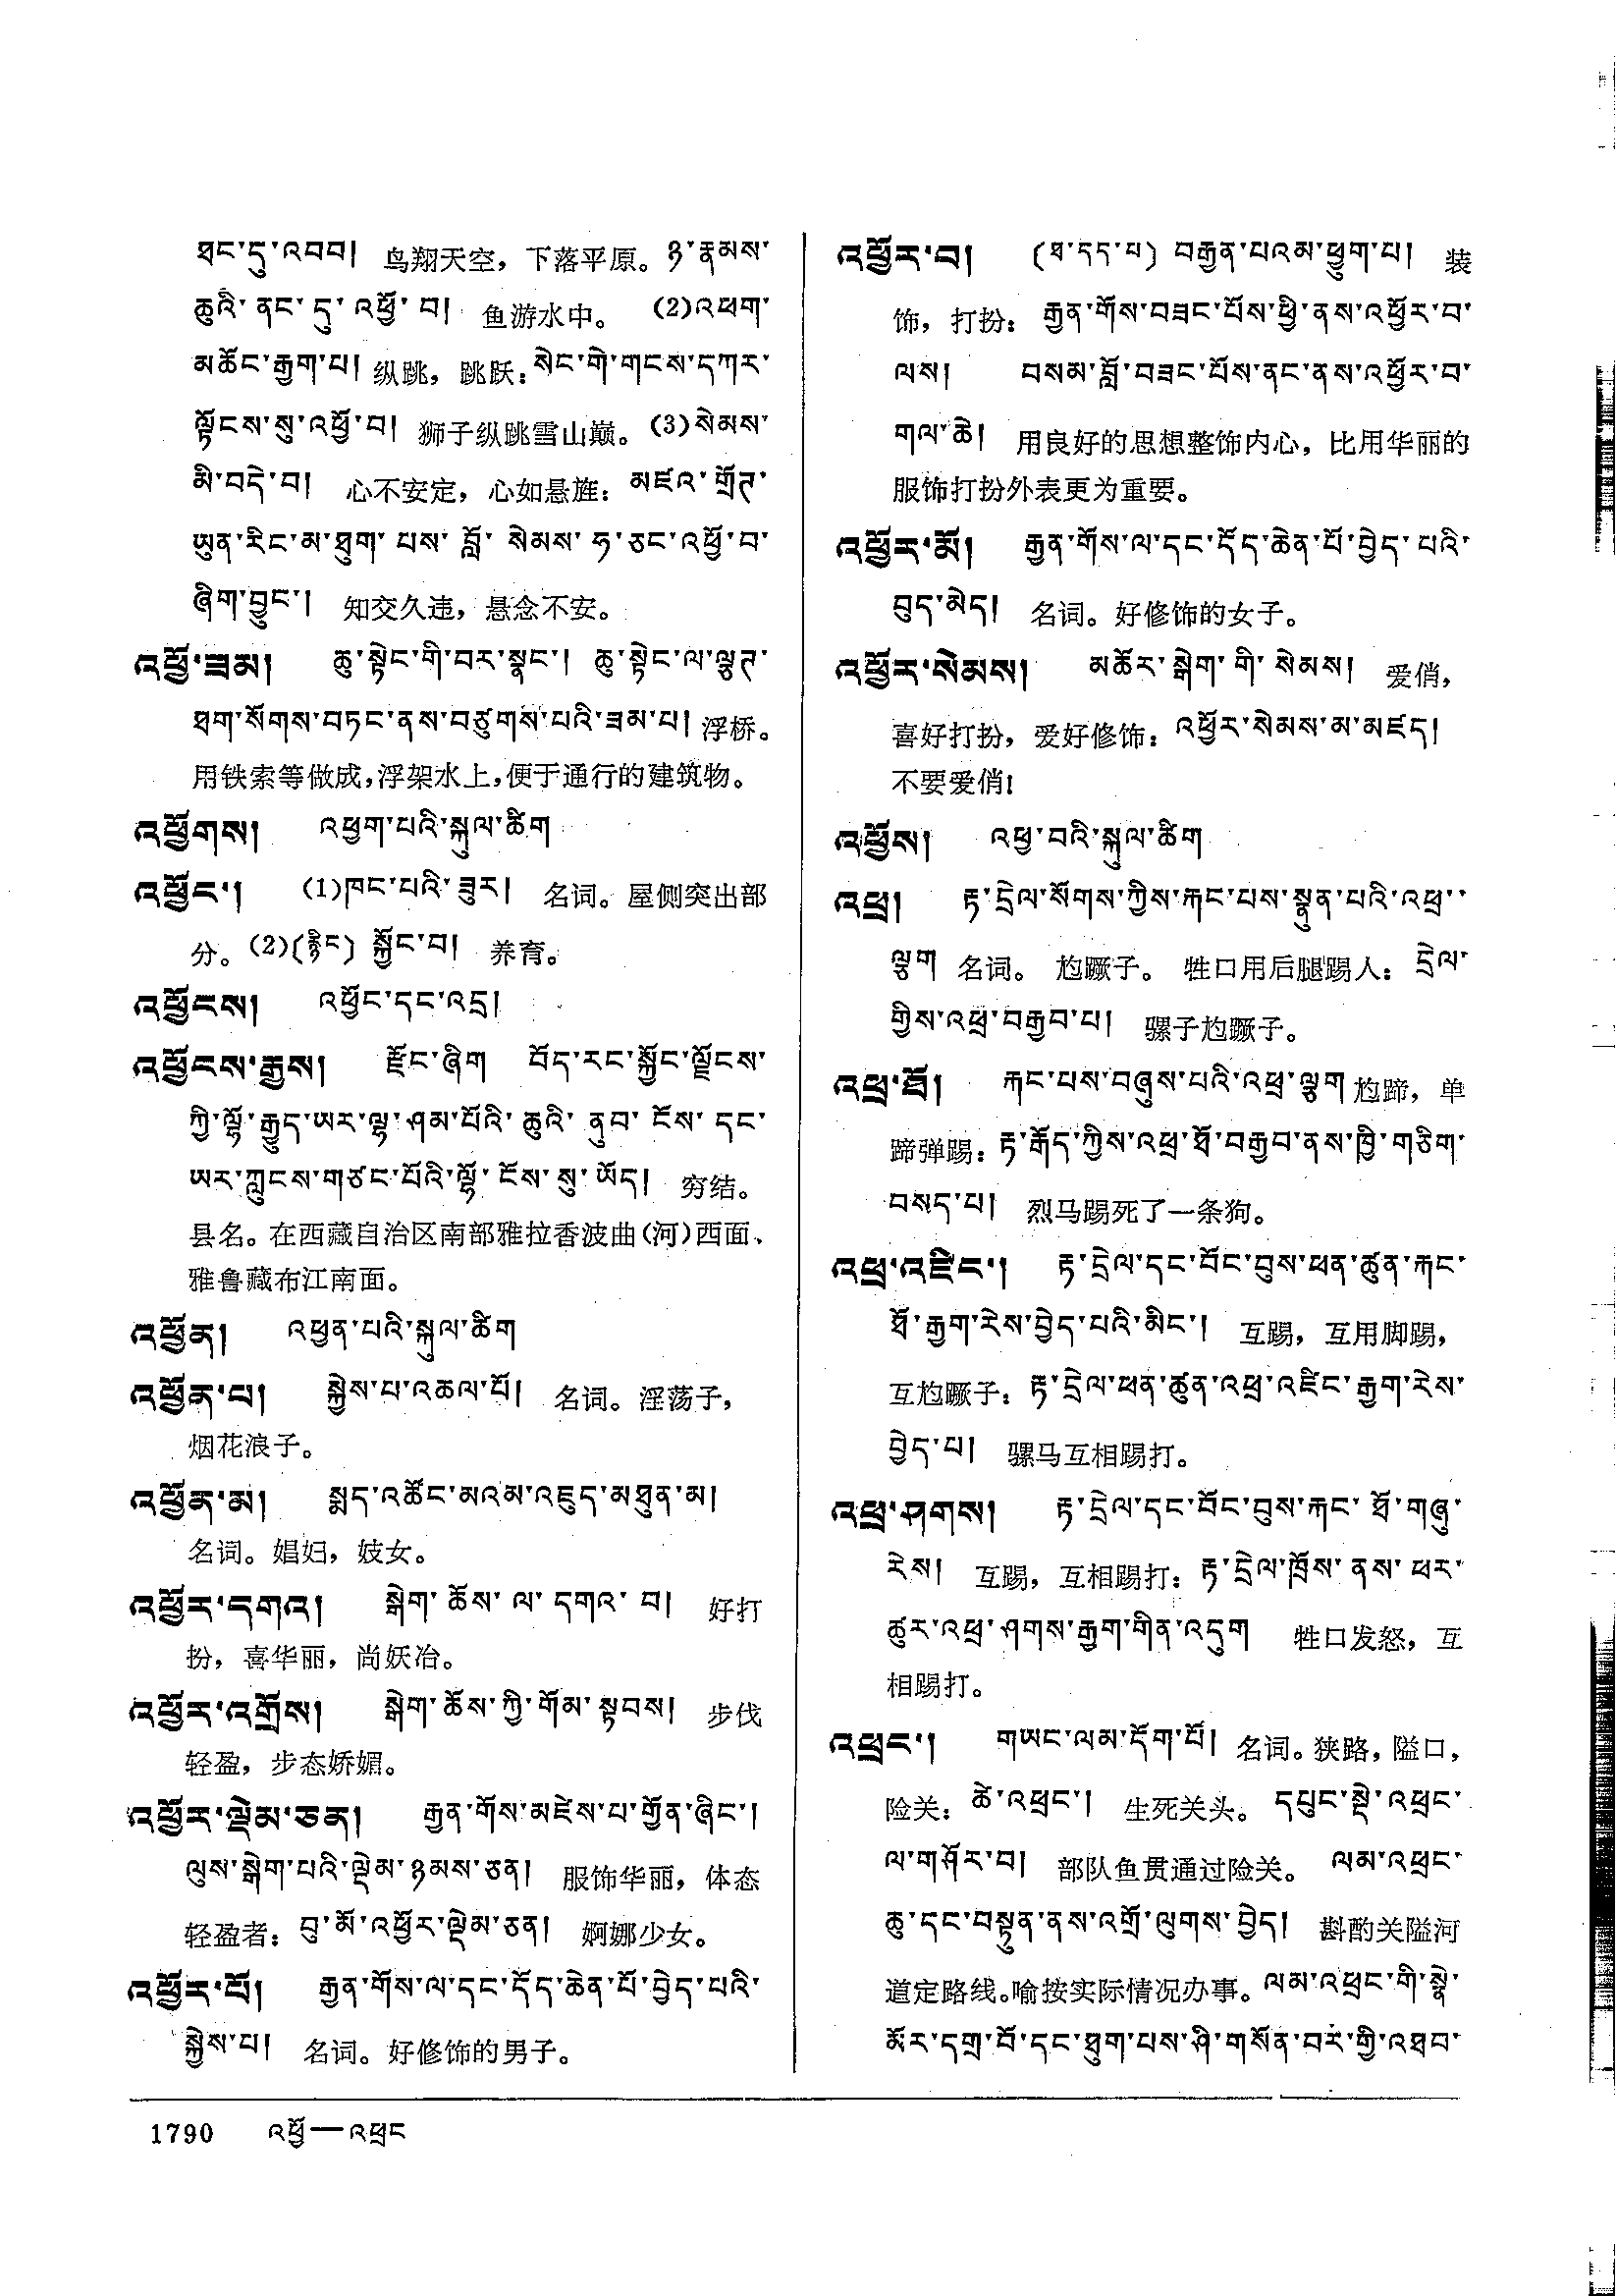 ཐང་དུ་འབབ། 鸟翔天空，下落平原。ཉ་རྣམས་
ཆུའི་ནང་དུ་འཕྱོ་བ། 鱼游水中。 (2)འཕག་
མཆོང་རྒྱག་པ། 纵跳，跳跃：སེང་གེ་གངས་དཀར་
ལྟོངས་སུ་འཕྱོ་བ། 狮子纵跳雪山巅。(3)སེམས་
མི་བདེ་བ། 心不安定，心如悬旌：མཛའ་གྲོཊ་
ཡུན་རིང་མ་ཐུག་པས་བློ་སེམས་ཧ་ཅང་འཕྱོ་བ་
ཞིག་བྱུང་། 知交久违，悬念不安。
འཕྱོ་ཟམ། ཆུ་སྟེང་གི་བར་སྣང་། ཆུ་སྟེང་ལ་ལྕཊ་
ཐག་སོགས་བཏང་ནས་བཙུགས་པའི་ཟམ་པ། 浮桥。
用铁索等做成，浮架水上，便于通行的建筑物。
འཕྱོགས། འཕྱག་པའི་སྐུལ་ཚིག
འཕྱོང་། (1)ཁང་པའི་ཟུར། 名词。屋侧突出部
分。(2)(རྙིང) སྐྱོང་བ། 养育。
འཕྱོངས། འཕྱོང་དང་འདྲ།
འཕྱོངས་རྒྱས། རྫོང་ཞིག བོད་རང་སྐྱོང་ལྗོངས་
ཀྱི་ལྷོ་རྒྱུད་ཡར་ལྷ་ཤམ་པོའི་ཆུའི་ནུབ་ངོས་དང་
ཡར་ཀླུངས་གཙང་པོའི་ལྷོ་ངོས་སུ་ཡོད། 穷结。
县名。在西藏自治区南部雅拉香波曲(河)西面、
雅鲁藏布江南面。
འཕྱོན། འཕྱན་པའི་སྐུལ་ཚིག
འཕྱོན་པ། སྐྱེས་པ་འཆལ་པོ། 名词。淫荡子，
烟花浪子。
འཕྱོན་མ། སྨད་འཚོང་མའམ་འཇུད་མཐུན་མ།
名词。娼妇，妓女。
འཕྱོར་དགའ། སྒེག་ཆོས་ལ་དགའ་བ། 好打
扮，喜华丽，尚妖冶。
འཕྱོར་འགྲོས། སྒེག་ཆོས་ཀྱི་གོམ་སྟབས། 步伐
轻盈，步态娇媚。
འཕྱོར་ལྡེམ་ཅན། རྒྱན་གོས་མཛེས་པ་གྱོན་ཞིང་།
ལུས་སྒེག་པའི་ལྡེམ་ཉམས་ཅན། 服饰华丽，体态
轻盈者：བུ་མོ་འཕྱོར་ལྡེམ་ཅན། 婀娜少女。
འཕྱོར་པོ། རྒྱན་གོས་ལ་དང་དོད་ཆེན་པོ་བྱེད་པའི་
སྐྱེས་པ། 名词。好修饰的男子。
འཕྱོར་བ། (ཐ་དད་པ) བརྒྱན་པའམ་ཕྱུག་པ། 装
饰，打扮：རྒྱན་གོས་བཟང་པོས་ཕྱི་ནས་འཕྱོར་བ་
ལས། བསམ་བློ་བཟང་པོས་ནང་ནས་འཕྱོར་བ་
གལ་ཆེ། 用良好的思想整饰内心，比用华丽的
服饰打扮外表更为重要。
འཕྱོར་མོ། རྒྱན་གོས་ལ་དང་དོད་ཆེན་པོ་བྱེད་པའི་
བུད་མེད། 名词。好修饰的女子。
འཕྱོར་སེམས། མཆོར་སྒེག་གི་སེམས། 爱俏，
喜好打扮，爱好修饰：འཕྱོར་སེམས་མ་མཛད།
不要爱俏！
འཕྱོས། འཕྱ་བའི་སྐུལ་ཚིག
འཕྲ། རྟ་དྲེལ་སོགས་ཀྱིས་རྐང་པས་སྣུན་པའི་འཕྲ་
ལྕག 名词。 尥蹶子。 牲口用后腿踢人：དྲེལ་
གྱིས་འཕྲ་བརྒྱབ་པ། 骡子尥蹶子。
འཕྲ་ཐོ། རྐང་པས་བཞུས་པའི་འཕྲ་ལྕག 尥蹄，单
蹄弹踢：རྟ་རྒོད་ཀྱིས་འཕྲ་ཐོ་བརྒྱབ་ནས་ཁྱི་གཅིག་
བསད་པ། 烈马踢死了一条狗。
འཕྲ་འཛིང་། རྟ་དྲེལ་དང་བོང་བུས་ཕན་ཚུན་རྐང་
ཐོ་རྒྱག་རེས་བྱེད་པའི་མིང་། 互踢，互用脚踢，
互尥蹶子：རྟ་དྲེལ་ཕན་ཚུན་འཕྲ་འཛིང་རྒྱག་རེས་
བྱེད་པ། 骡马互相踢打。
འཕྲ་ཤགས། རྟ་དྲེལ་དང་བོང་བུས་རྐང་ཐོ་གཞུ་
རེས། 互踢，互相踢打：རྟ་དྲེལ་ཁྲོས་ནས་ཕར་
ཚུར་འཕྲ་ཤགས་རྒྱག་གིན་འདུག 牲口发怒，互
相踢打。
འཕྲང་། གཡང་ལམ་དོག་པོ། 名词。狭路，隘口，
险关：ཚེ་འཕྲང་། 生死关头。དཔུང་སྡེ་འཕྲང་
ལ་གཤོར་བ། 部队鱼贯通过险关。 ལམ་འཕྲང་
ཆུ་དང་བསྟུན་ནས་འགྲོ་ལུགས་བྱེད། 斟酌关隘河
道定路线。喻按实际情况办事。ལམ་འཕྲང་གི་སྣེ་
མོར་དགྲ་བོ་དང་ཐུག་པས་ཤི་གསོན་བར་གྱི་འཐབ་
1790 འཕྱོ—འཕྲང